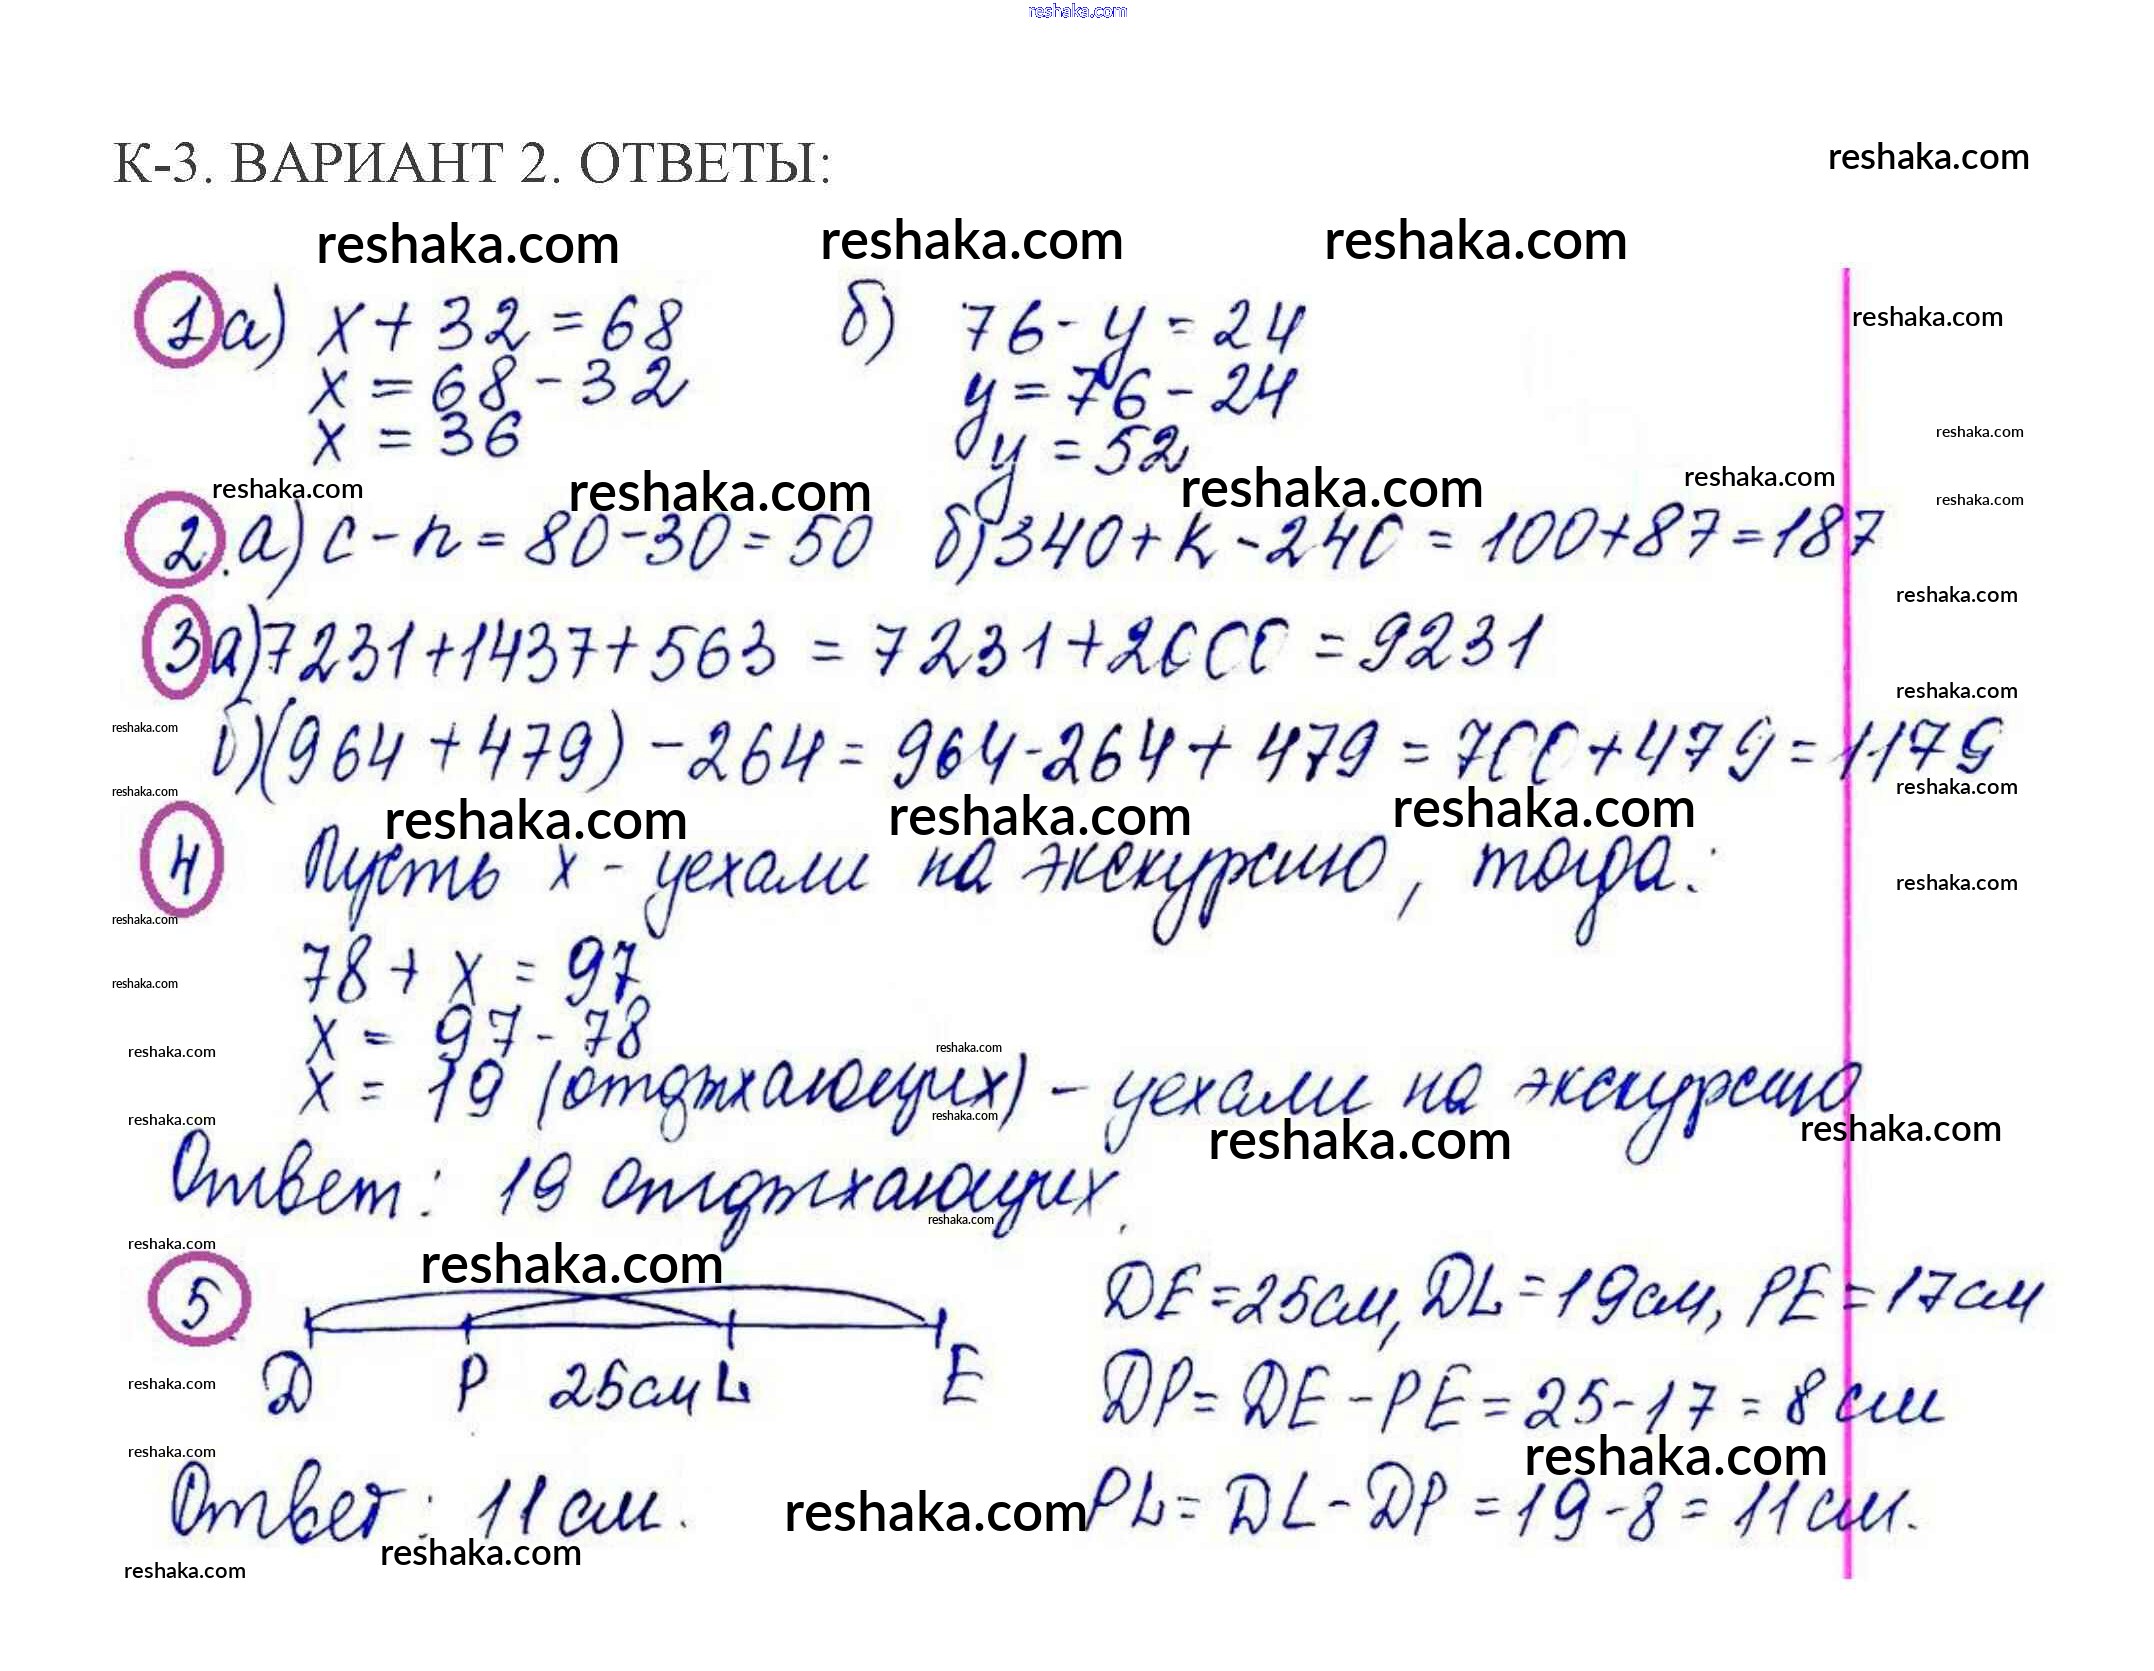 reshaka.com
К-3. ВАРИАНТ 2. ОТВЕТЫ:
reshaka.com
reshaka.com reshaka.com reshaka.com
1 а) x + 32 = 68 б) 76 - y = 24
reshaka.com
x = 68 - 32 y = 76 - 24
x = 36 y = 52
reshaka.com
reshaka.com reshaka.com reshaka.com reshaka.com
reshaka.com
2. а) c - n = 80 - 30 = 50 б) 340 + k - 240 = 100 + 87 = 187
reshaka.com
3 а) 7231 + 1437 + 563 = 7231 + 2000 = 9231
reshaka.com
reshaka.com
б) (964 + 479) - 264 = 964 - 264 + 479 = 700 + 479 = 1179
reshaka.com reshaka.com
reshaka.com reshaka.com reshaka.com
4 Пусть x - уехали на экскурсию, тогда:
reshaka.com
reshaka.com
78 + x = 97
reshaka.com
x = 97 - 78
reshaka.com reshaka.com
x = 19 (отдыхающих) - уехали на экскурсию
reshaka.com reshaka.com reshaka.com reshaka.com
Ответ: 19 отдыхающих.
reshaka.com
reshaka.com reshaka.com
5 DE = 25 см, DL = 19 см, PE = 17 см
D P 25 см L E
reshaka.com
DP = DE - PE = 25 - 17 = 8 см
reshaka.com reshaka.com
Ответ: 11 см. reshaka.com PL = DL - DP = 19 - 8 = 11 см.
reshaka.com
reshaka.com